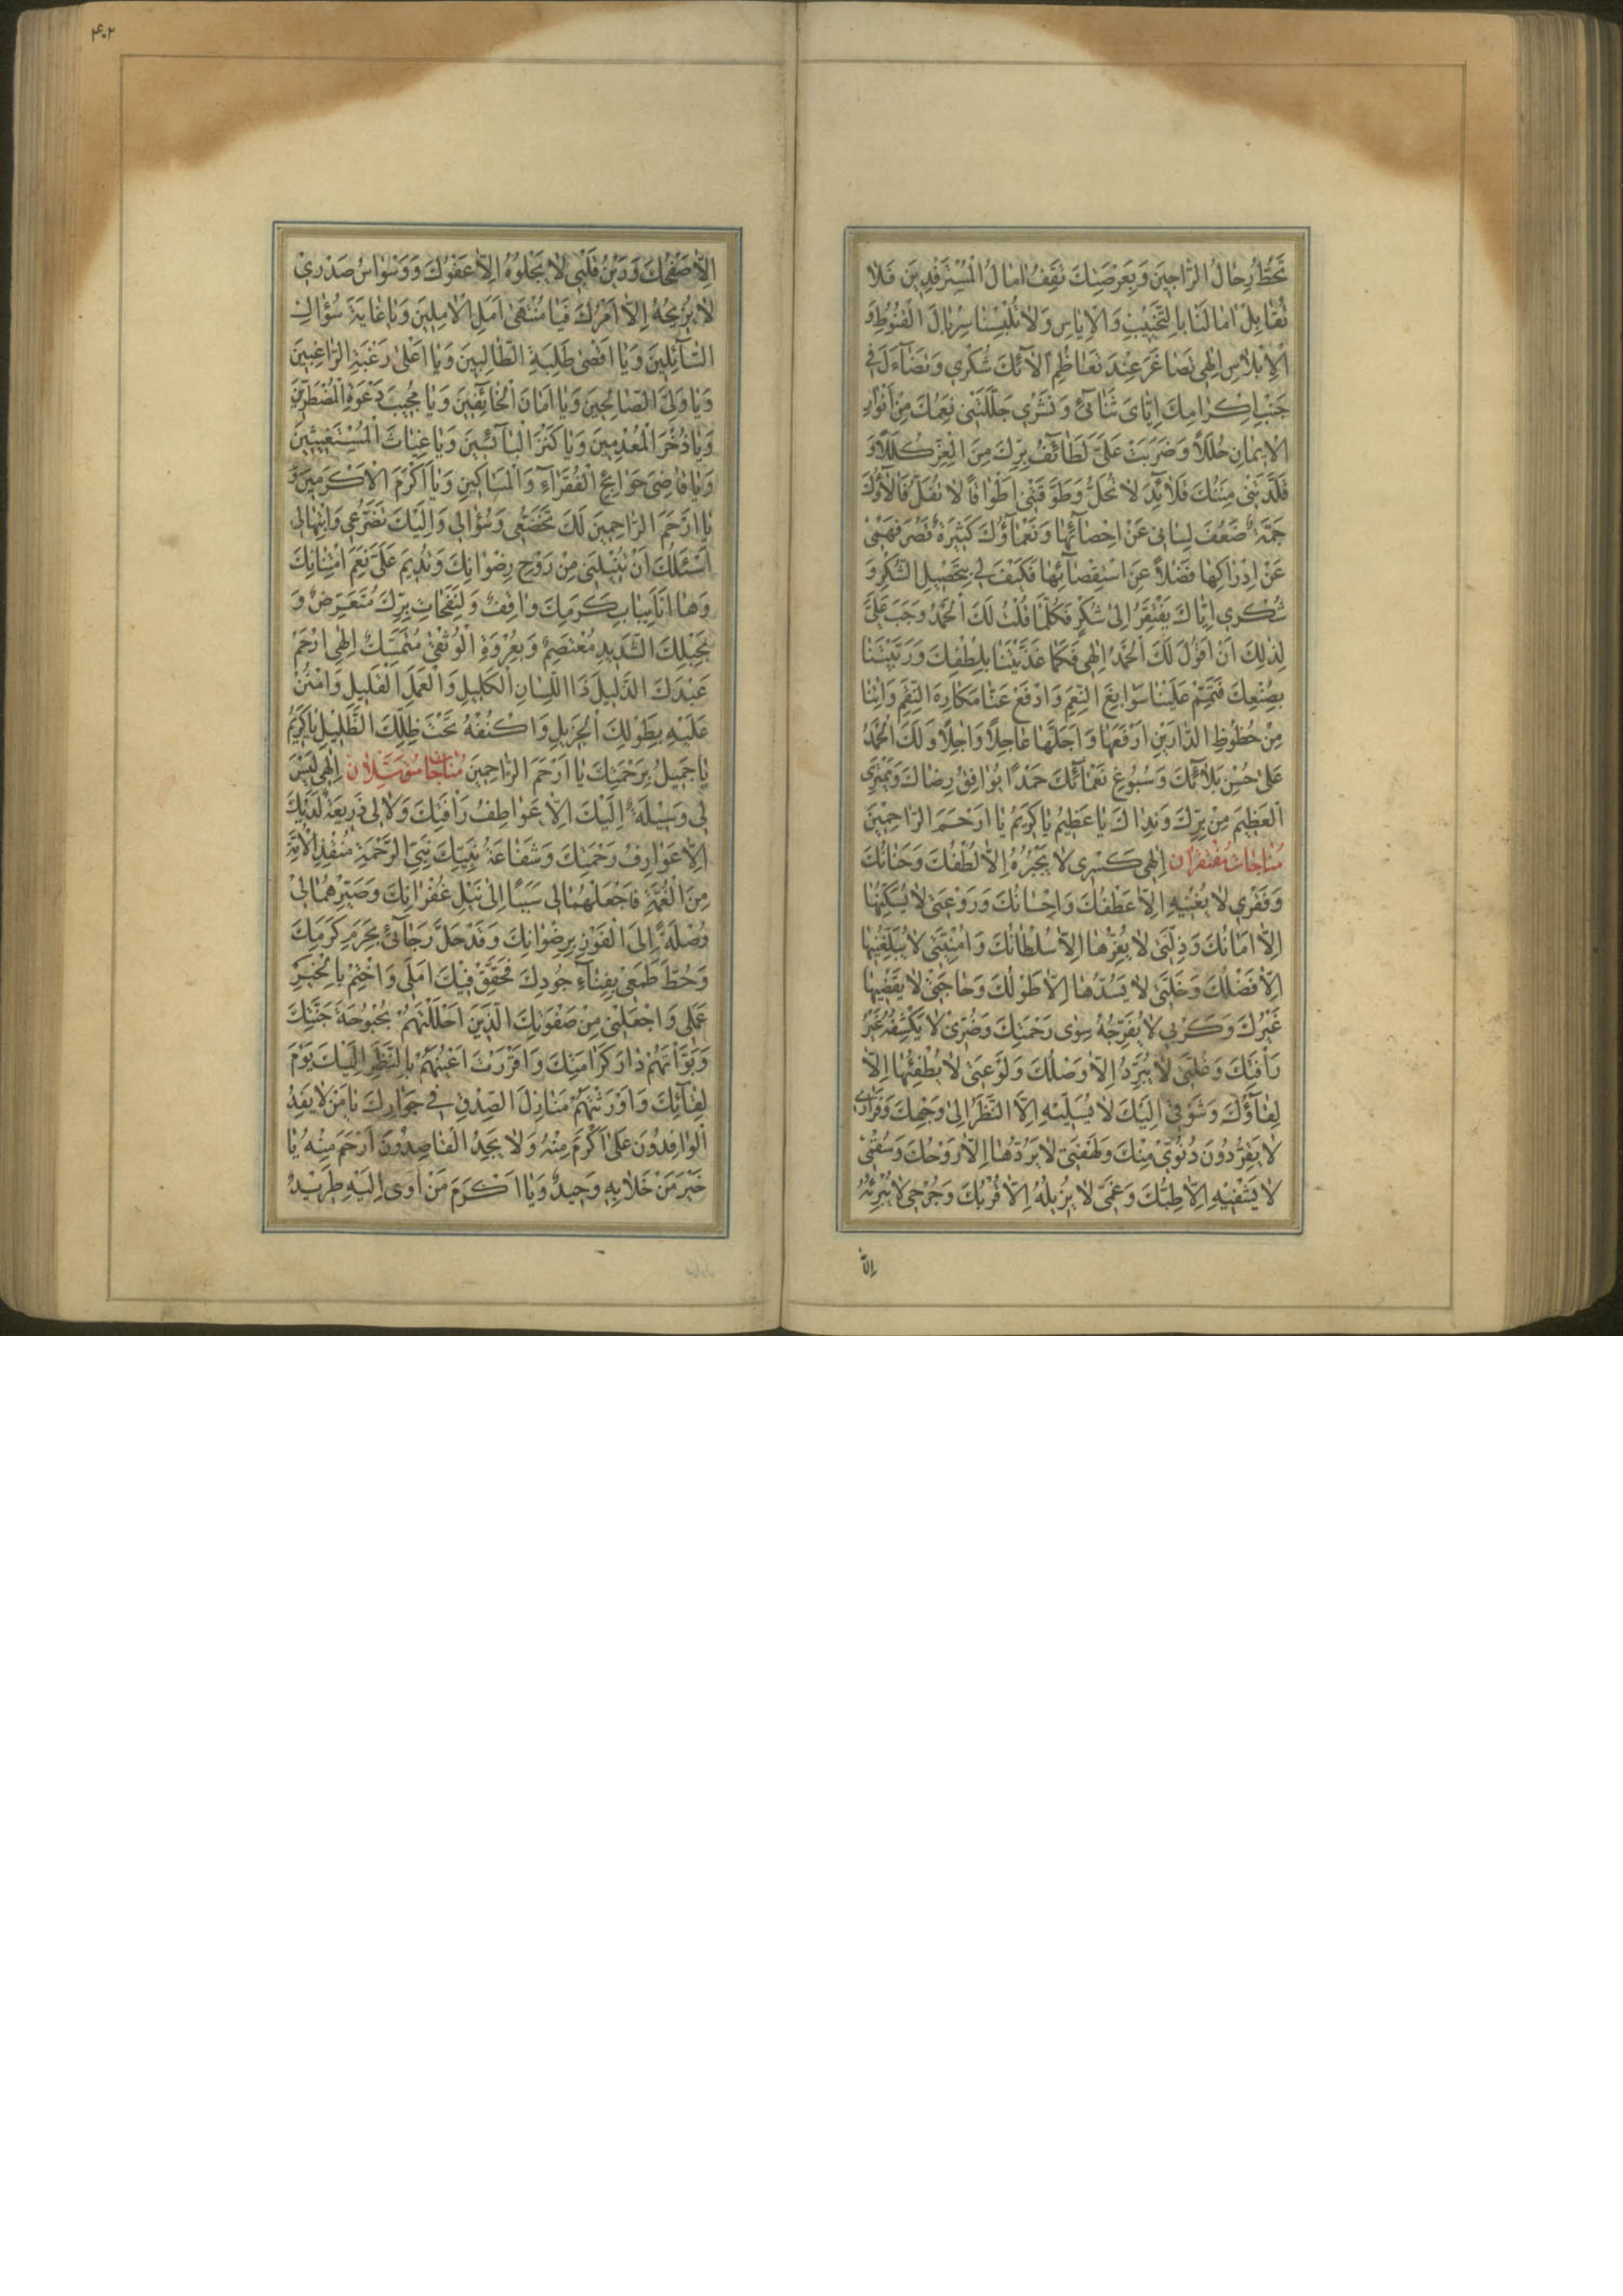 تَحُطُّ رِحالُ الرَّاجينَ وَبِعَرْصَتِكَ تَقِفُ امالُ الْمُسْتَرْفِدينَ فَلا
تُقابِلْ امالَنا بِالتَّخْييبِ وَالْاِياسِ وَلا تُلْبِسْنا سِرْبالَ الْقُنُوطِ وَ
الْاِبْلاسِ اِلهي تَصاغَرَ عِنْدَ تَعاظُمِ الآئِكَ شُكْري وَتَضآءَلَ في
جَنْبِ اِكْرامِكَ اِيَّايَ ثَنآئي وَنَشْري جَلَّلَتْني نِعَمُكَ مِنْ اَنْوارِ
الْايمانِ حُلَلاً وَضَرَبَتْ عَلَيَّ لَطآئِفُ بِرِّكَ مِنَ الْعِزِّ كُلَلاً وَ
قَلَّدَتْني مِنَنُكَ قَلائِدَ لا تُحَلُّ وَطَوَّقَتْني اَطْواقاً لا تُفَلُّ فَالآؤُكَ
جَمَّةٌ ضَعُفَ لِساني عَنْ اِحْصآئِها وَنَعْمآؤُكَ كَثيرَةٌ قَصُرَ فَهْمي
عَنْ اِدْراكِها فَضْلاً عَنِ اسْتِقْصآئِها فَكَيْفَ لي بِتَحْصيلِ الشُّكْرِ وَ
شُكْري اِيَّاكَ يَفْتَقِرُ اِلى شُكْرٍ فَكُلَّما قُلْتُ لَكَ الْحَمْدُ وَجَبَ عَلَيَّ
لِذلِكَ اَنْ اَقُولَ لَكَ الْحَمْدُ اِلهي فَكَما غَذَّيْتَنا بِلُطْفِكَ وَرَبَّيْتَنا
بِصُنْعِكَ فَتَمِّمْ عَلَيْنا سَوابِغَ النِّعَمِ وَادْفَعْ عَنَّا مَكارِهَ النِّقَمِ وَاتِنا
مِنْ حُظُوظِ الدَّارَيْنِ اَرْفَعَها وَاَجَلَّها عاجِلاً وَاجِلاً وَلَكَ الْحَمْدُ
عَلى حُسْنِ بَلآئِكَ وَسُبُوغِ نَعْمآئِكَ حَمْداً يُوافِقُ رِضاكَ وَيَمْتَرِي
الْعَظيمَ مِنْ بِرِّكَ وَنَداكَ يا عَظيمُ يا كَريمُ يا اَرْحَمَ الرَّاحِمينَ
مُناجات مُفْتَقِران اِلهي كَسْري لا يَجْبُرُهُ اِلاَّ لُطْفُكَ وَحَنانُكَ
وَفَقْري لا يُغْنيهِ اِلاَّ عَطْفُكَ وَاِحْسانُكَ وَرَوْعَتي لا يُسَكِّنُها
اِلاَّ اَمانُكَ وَذِلَّتي لا يُعِزُّها اِلاَّ سُلْطانُكَ وَاُمْنِيَّتي لا يُبَلِّغُنيها
اِلاَّ فَضْلُكَ وَخَلَّتي لا يَسُدُّها اِلاَّ طَوْلُكَ وَحاجَتي لا يَقْضيها
غَيْرُكَ وَكَرْبي لا يُفَرِّجُهُ سِوى رَحْمَتِكَ وَضُرّي لا يَكْشِفُهُ غَيْرُ
رَأْفَتِكَ وَغُلَّتي لا يُبَرِّدُ اِلاَّ وَصْلُكَ وَلَوْعَتي لا يُطْفِئُها اِلاَّ
لِقآؤُكَ وَشَوْقي اِلَيْكَ لا يُسَلّيهِ اِلاَّ النَّظَرُ اِلى وَجْهِكَ وَقَراري
لا يَقِرُّ دُونَ دُنُوّي مِنْكَ وَلَهْفَتي لا يَرُدُّها اِلاَّ رَوْحُكَ وَسُقْمي
لا يَشْفيهِ اِلاَّ طِبُّكَ وَغَمّي لا يُزيلُهُ اِلاَّ قُرْبُكَ وَجُرْحي لا يُبْرِئُهُ
اِلاَّ
۴۰۲
اِلاَّ صَفْحُكَ وَرَيْنُ قَلْبي لا يَجْلُوهُ اِلاَّ عَفْوُكَ وَوَسْواسُ صَدْري
لا يُزيحُهُ اِلاَّ اَمْرُكَ فَيا مُنْتَهى اَمَلِ الْامِلينَ وَيا غايَةَ سُؤْالِ
السَّآئِلينَ وَيا اَقْصى طَلِبَةِ الطَّالِبينَ وَيا اَعْلى رَغْبَةِ الرَّاغِبينَ
وَيا وَلِيَّ الصَّالِحينَ وَيا اَمانَ الْخآئِفينَ وَيا مُجيبَ دَعْوَةِ الْمُضْطَرّينَ
وَيا ذُخْرَ الْمُعْدِمينَ وَيا كَنْزَ الْبآئِسينَ وَيا غِياثَ الْمُسْتَغيثينَ
وَيا قاضِيَ حَوائِجِ الْفُقَرآءِ وَالْمَساكينِ وَيا اَكْرَمَ الْاَكْرَمينَ وَ
يا اَرْحَمَ الرَّاحِمينَ لَكَ تَخَضُّعي وَسُؤالي وَاِلَيْكَ تَضَرُّعي وَابْتِهالي
اَسْئَلُكَ اَنْ تُنيلَني مِنْ رَوْحِ رِضْوانِكَ وَتُديمَ عَلَيَّ نِعَمَ امْتِنانِكَ
وَها اَنَا بِبابِ كَرَمِكَ واقِفٌ وَلِنَفَحاتِ بِرِّكَ مُتَعَرِّضٌ وَ
بِحَبْلِكَ الشَّديدِ مُعْتَصِمٌ وَبِعُرْوَةِ الْوُثْقى مُتَمَسِّكٌ اِلهي ارْحَمْ
عَبْدَكَ الذَّليلَ ذَا اللِّسانِ الْكَليلِ وَالْعَمَلِ الْقَليلِ وَامْنُنْ
عَلَيْهِ بِطَوْلِكَ الْجَزيلِ وَاكْنُفْهُ تَحْتَ ظِلِّكَ الظَّليلِ يا كَريمُ
يا جَميلُ بِرَحْمَتِكَ يا اَرْحَمَ الرَّاحِمينَ مُناجات مُتوسِّلان اِلهي لَيْسَ
لي وَسيلَةٌ اِلَيْكَ اِلاَّ عَواطِفُ رَأْفَتِكَ وَلا لي ذَريعَةٌ لَدَيْكَ
اِلاَّ عَوارِفُ رَحْمَتِكَ وَشَفاعَةُ نَبِيِّكَ نَبِيِّ الرَّحْمَةِ مُنْقِذِ الْاُمَّةِ
مِنَ الْغُمَّةِ فَاجْعَلْهُما لي سَبَباً اِلى نَيْلِ غُفْرانِكَ وَصَيِّرْهُما لي
وُصْلَةً اِلَى الْفَوْزِ بِرِضْوانِكَ وَقَدْ حَلَّ رَجآئي بِحَرَمِ كَرَمِكَ
وَحُطَّ طَمَعي بِفِنآءِ جُودِكَ فَحَقِّقْ فيكَ اَمَلي وَاخْتِمْ بِالْخَيْرِ
عَمَلي وَاجْعَلْني مِنْ صَفْوَتِكَ الَّذينَ اَحْلَلْتَهُمْ بُحْبُوحَةَ جَنَّتِكَ
وَبَوَّأْتَهُمْ دارَ كَرامَتِكَ وَاَقْرَرْتَ اَعْيُنَهُمْ بِالنَّظَرِ اِلَيْكَ يَوْمَ
لِقآئِكَ وَاَوْرَثْتَهُمْ مَنازِلَ الصِّدْقِ في جِوارِكَ يا مَنْ لا يَفِدُ
الْوافِدُونَ عَلى اَكْرَمَ مِنْهُ وَلا يَجِدُ الْقاصِدُونَ اَرْحَمَ مِنْهُ يا
خَيْرَ مَنْ خَلا بِهِ وَحيدٌ وَيا اَكْرَمَ مَنْ اَوى اِلَيْهِ طَريدٌ